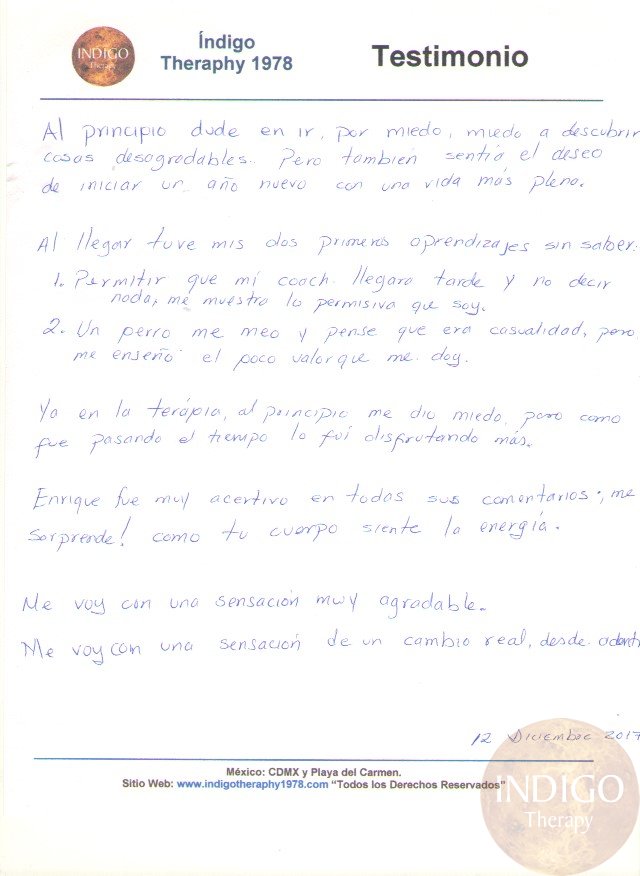 INDIGO
Therapy
Índigo
Theraphy 1978
Testimonio
Al principio dude en ir, por miedo, miedo a descubrir
cosas desagradables. Pero también sentía el deseo
de iniciar un año nuevo con una vida más plena.
Al llegar tuve mis dos primeros aprendizajes sin saber:
1. Permitir que mi coach llegara tarde y no decir
nada, me muestra lo permisiva que soy.
2. Un perro me meo y pense que era casualidad, pero
me enseño el poco valor que me doy.
Ya en la terápia, al principio me dio miedo, pero como
fue pasando el tiempo lo fui disfrutando más.
Enrique fue muy acertivo en todas sus comentarios; me
sorprende! como tu cuerpo siente la energía.
Me voy con una sensación muy agradable.
Me voy con una sensación de un cambio real, desde adentr
12 Diciembre 2017
México: CDMX y Playa del Carmen.
Sitio Web: www.indigotheraphy1978.com “Todos los Derechos Reservados”
INDIGO
Therapy